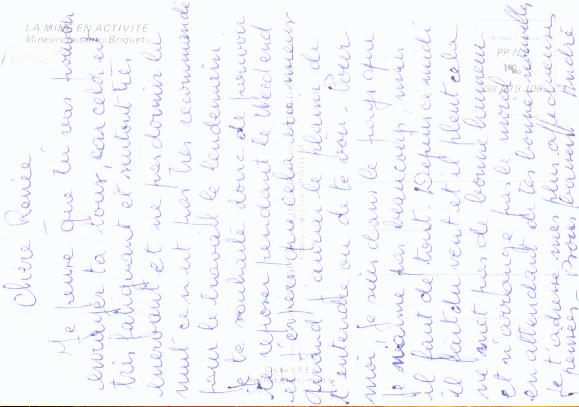 LA MINE EN ACTIVITE
Mineurs faisant « Briquet »
Chère Renée
Je pense que tu vas pouvoir
enrayer ta toux, car cela est
très fatiguant et surtout très
énervant et ne pas dormir la
nuit ce n'est pas très recommandé
pour le travail le lendemain.
Je te souhaite donc de pouvoir
te reposer pendant le Weekend
et j'espère que cela ira mieux
quand j'aurai le plaisir de
t'entendre ou de te voir. Pour
moi je suis dans le pays que
je n'aime pas beaucoup, mais
il faut de tout. Depuis ce midi
il fait du vent et il pleut cela
ne met pas de bonne humeur
et n'arrange pas le moral
en attendant de tes bonnes nouvelles
je t'adresse mes plus affectueuses
pensées. Bons baisers André
PP N